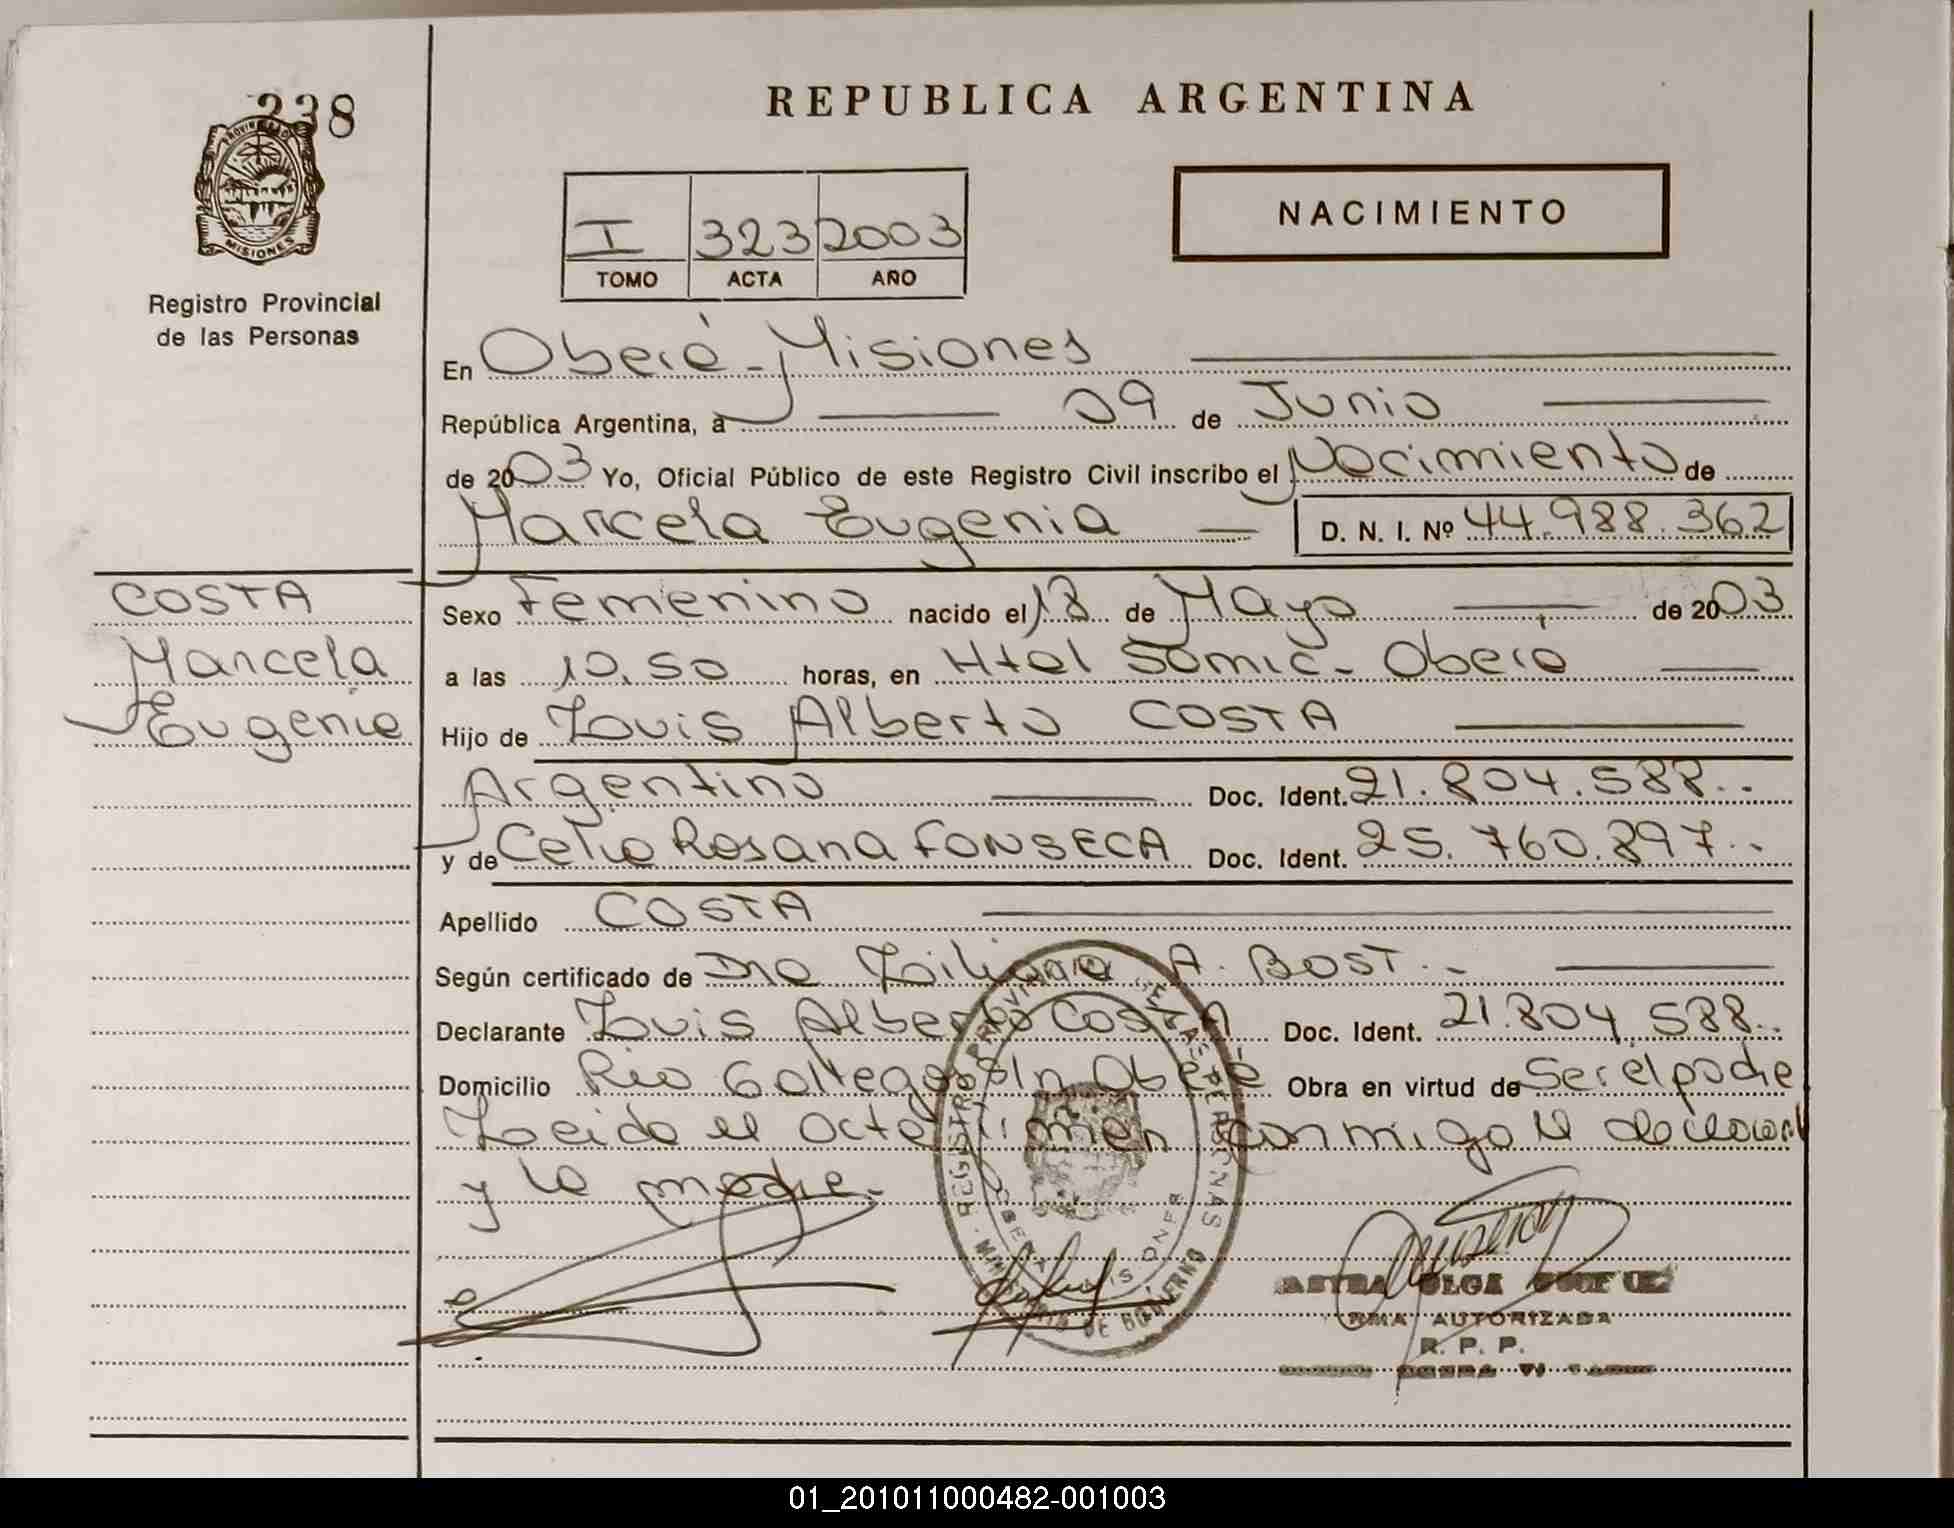 238
PROVINCIA DE
MISIONES
Registro Provincial
de las Personas
REPUBLICA ARGENTINA
I 323 2003
TOMO ACTA AÑO
NACIMIENTO
En Oberá - Misiones
República Argentina, a 09 de Junio
de 2003 Yo, Oficial Público de este Registro Civil inscribo el Nacimiento de
Marcela Eugenia D. N. I. Nº 44.988.362
COSTA
Marcela
Eugenia
Sexo Femenino nacido el 18 de Mayo de 2003
a las 10.50 horas, en Htal Samic - Oberá
Hijo de Luis Alberto COSTA
Argentino Doc. Ident. 21.804.588..
y de Celia Rosana FONSECA Doc. Ident. 25.760.897..
Apellido COSTA
Según certificado de Dra Liliana A. BOST.-
Declarante Luis Alberto COSTA Doc. Ident. 21.804.588..
Domicilio Rio Gallegos S/n Oberá Obra en virtud de Ser el padre
Leida el acta firman conmigo el declarant
y la madre.-
REGISTRO PROVINCIAL DE LAS PERSONAS
MINISTERIO DE GOBIERNO
OLGA
FIRMA AUTORIZADA
R. P. P.
01_201011000482-001003